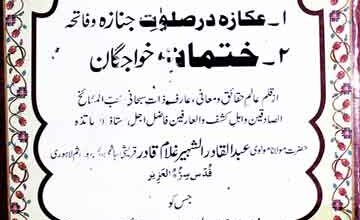 ۱۔ عکازہ در صلوٰتِ جنازہ و فاتحہ
۲۔ ختمات خواجگان
از قلم عالم حقائق و معانی، عارف ذات سبحانی المشائخ
الصادقین و اہل کشف و العارفین فاضل اجل، ستاذ الاساتذہ
حضرت مولانا مولوی عبد القادر الشہیر غلام قادر قریشی ہاشمی لاہوری
قدس سرہ العزیز
جس کو